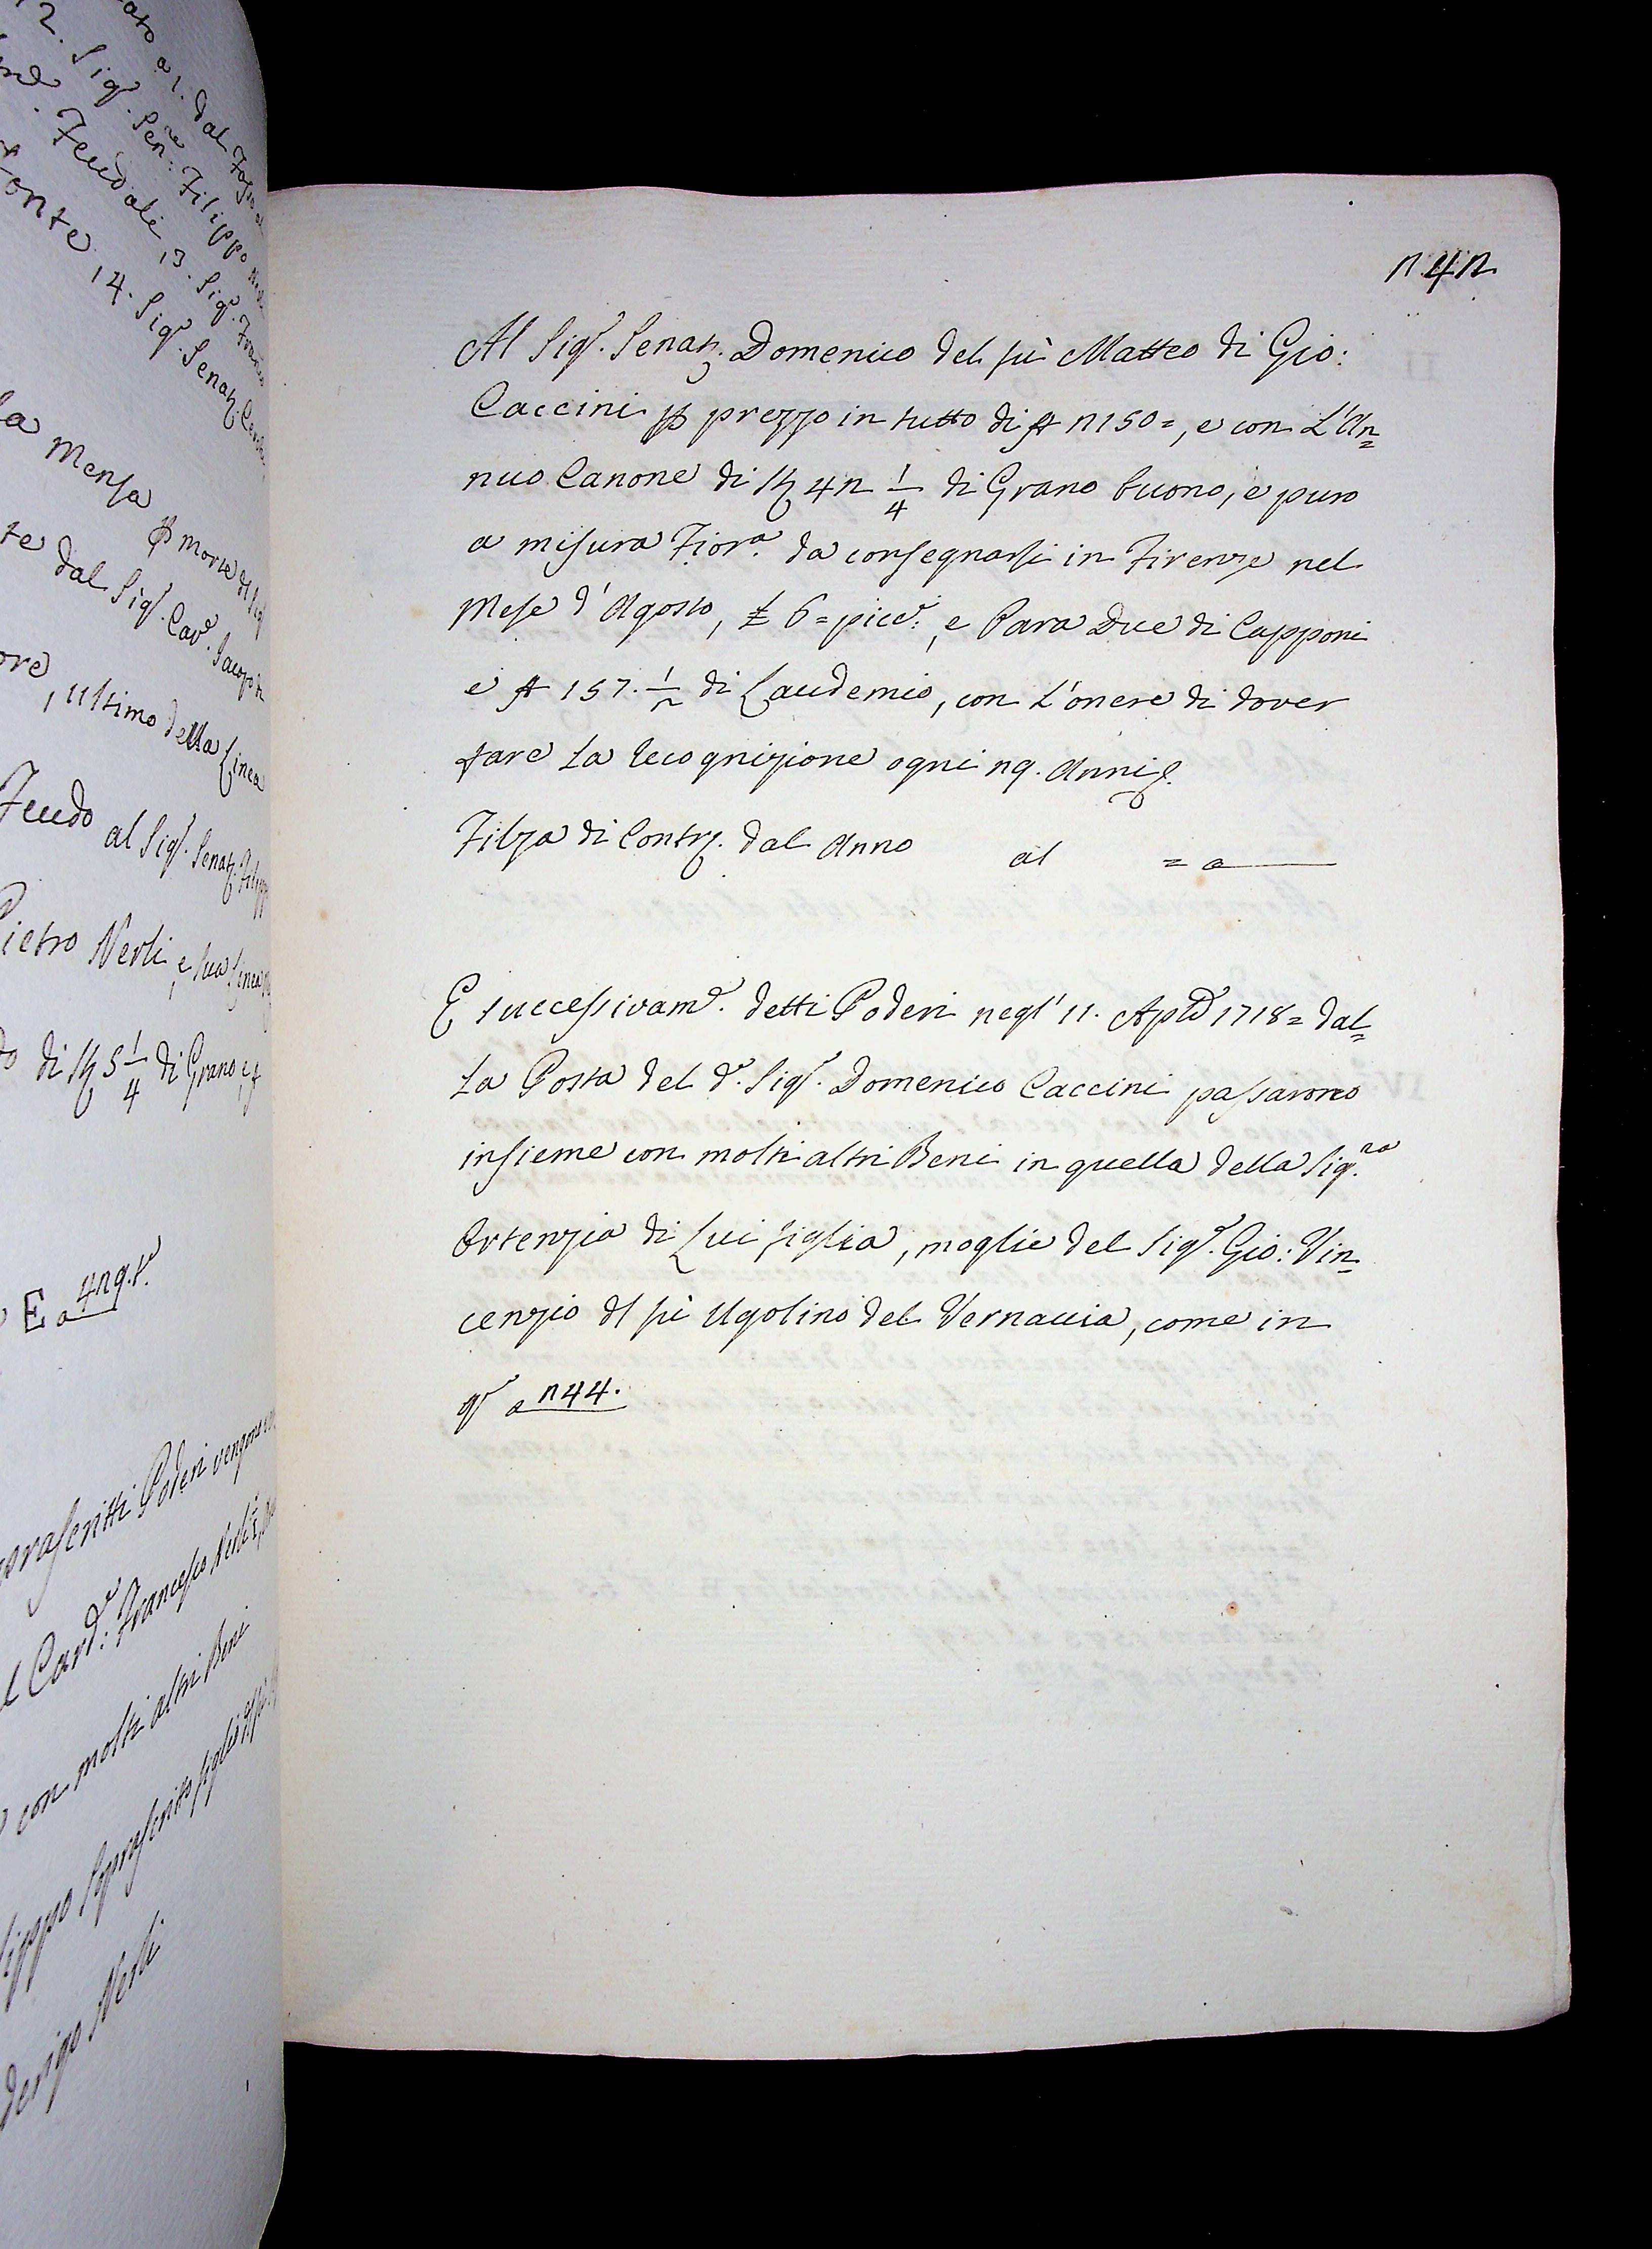 ato a 1. dal Fosso
2. Sigr. Senre: Filippo
Feudali 13. Sigr. Franc
fonte 14. Sigr. Senatr. 
la Mensa
te dal Sigr. Cavr. Jacopo
ore, ultimo della Linea
Feudo al Sigr. Senatr. Filipp
Pietro Nerli, e sua Linea
di Sta 5 1/4 di Grano, e
E a 42q.to
oprascritti Poderi vengono
l Card: Francesco Nerli
con molti altri Beni
lippo Soprascritto figlio
derigo Nerli
242
Al Sigr. Senatr. Domenico del fù Matteo di Gio:
Caccini p prezzo in tutto di 2150=, e con L'An=
nuo Canone di Sta 42 1/4 di Grano buono, e puro
a misura Fiora. da consegnarsi in Firenze nel
Mese d'Agosto, £ 6= picc:, e Para Due di Capponi
e 157. 1/2 di Laudemio, con L'onere di dover
fare La Recognizione ogni 29. Anni
Filza di Contr. dal Anno al = a
E successivame. detti Poderi negl' 11. Aple 1718= dal=
La Posta del do. Sigr. Domenico Caccini passarono
insieme con molti altri Beni in quella della Sig.ra
Ortenzia di Lui figlia, moglie del Sigr. Gio: Vin=
cenzio dl fù Ugolino del Vernaccia, come in
qo a 244.